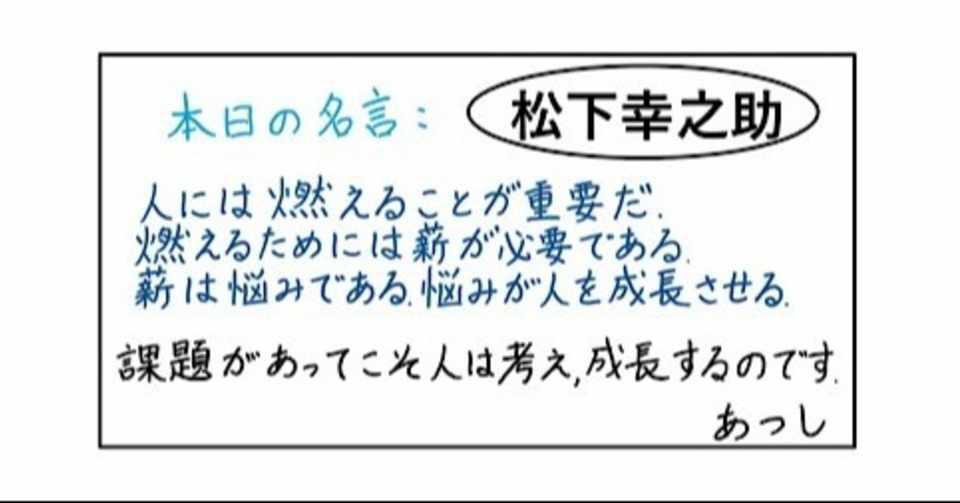 本日の名言： 松下幸之助
人には燃えることが重要だ.
燃えるためには薪が必要である.
薪は悩みである.悩みが人を成長させる.
課題があってこそ人は考え,成長するのです.
あっし